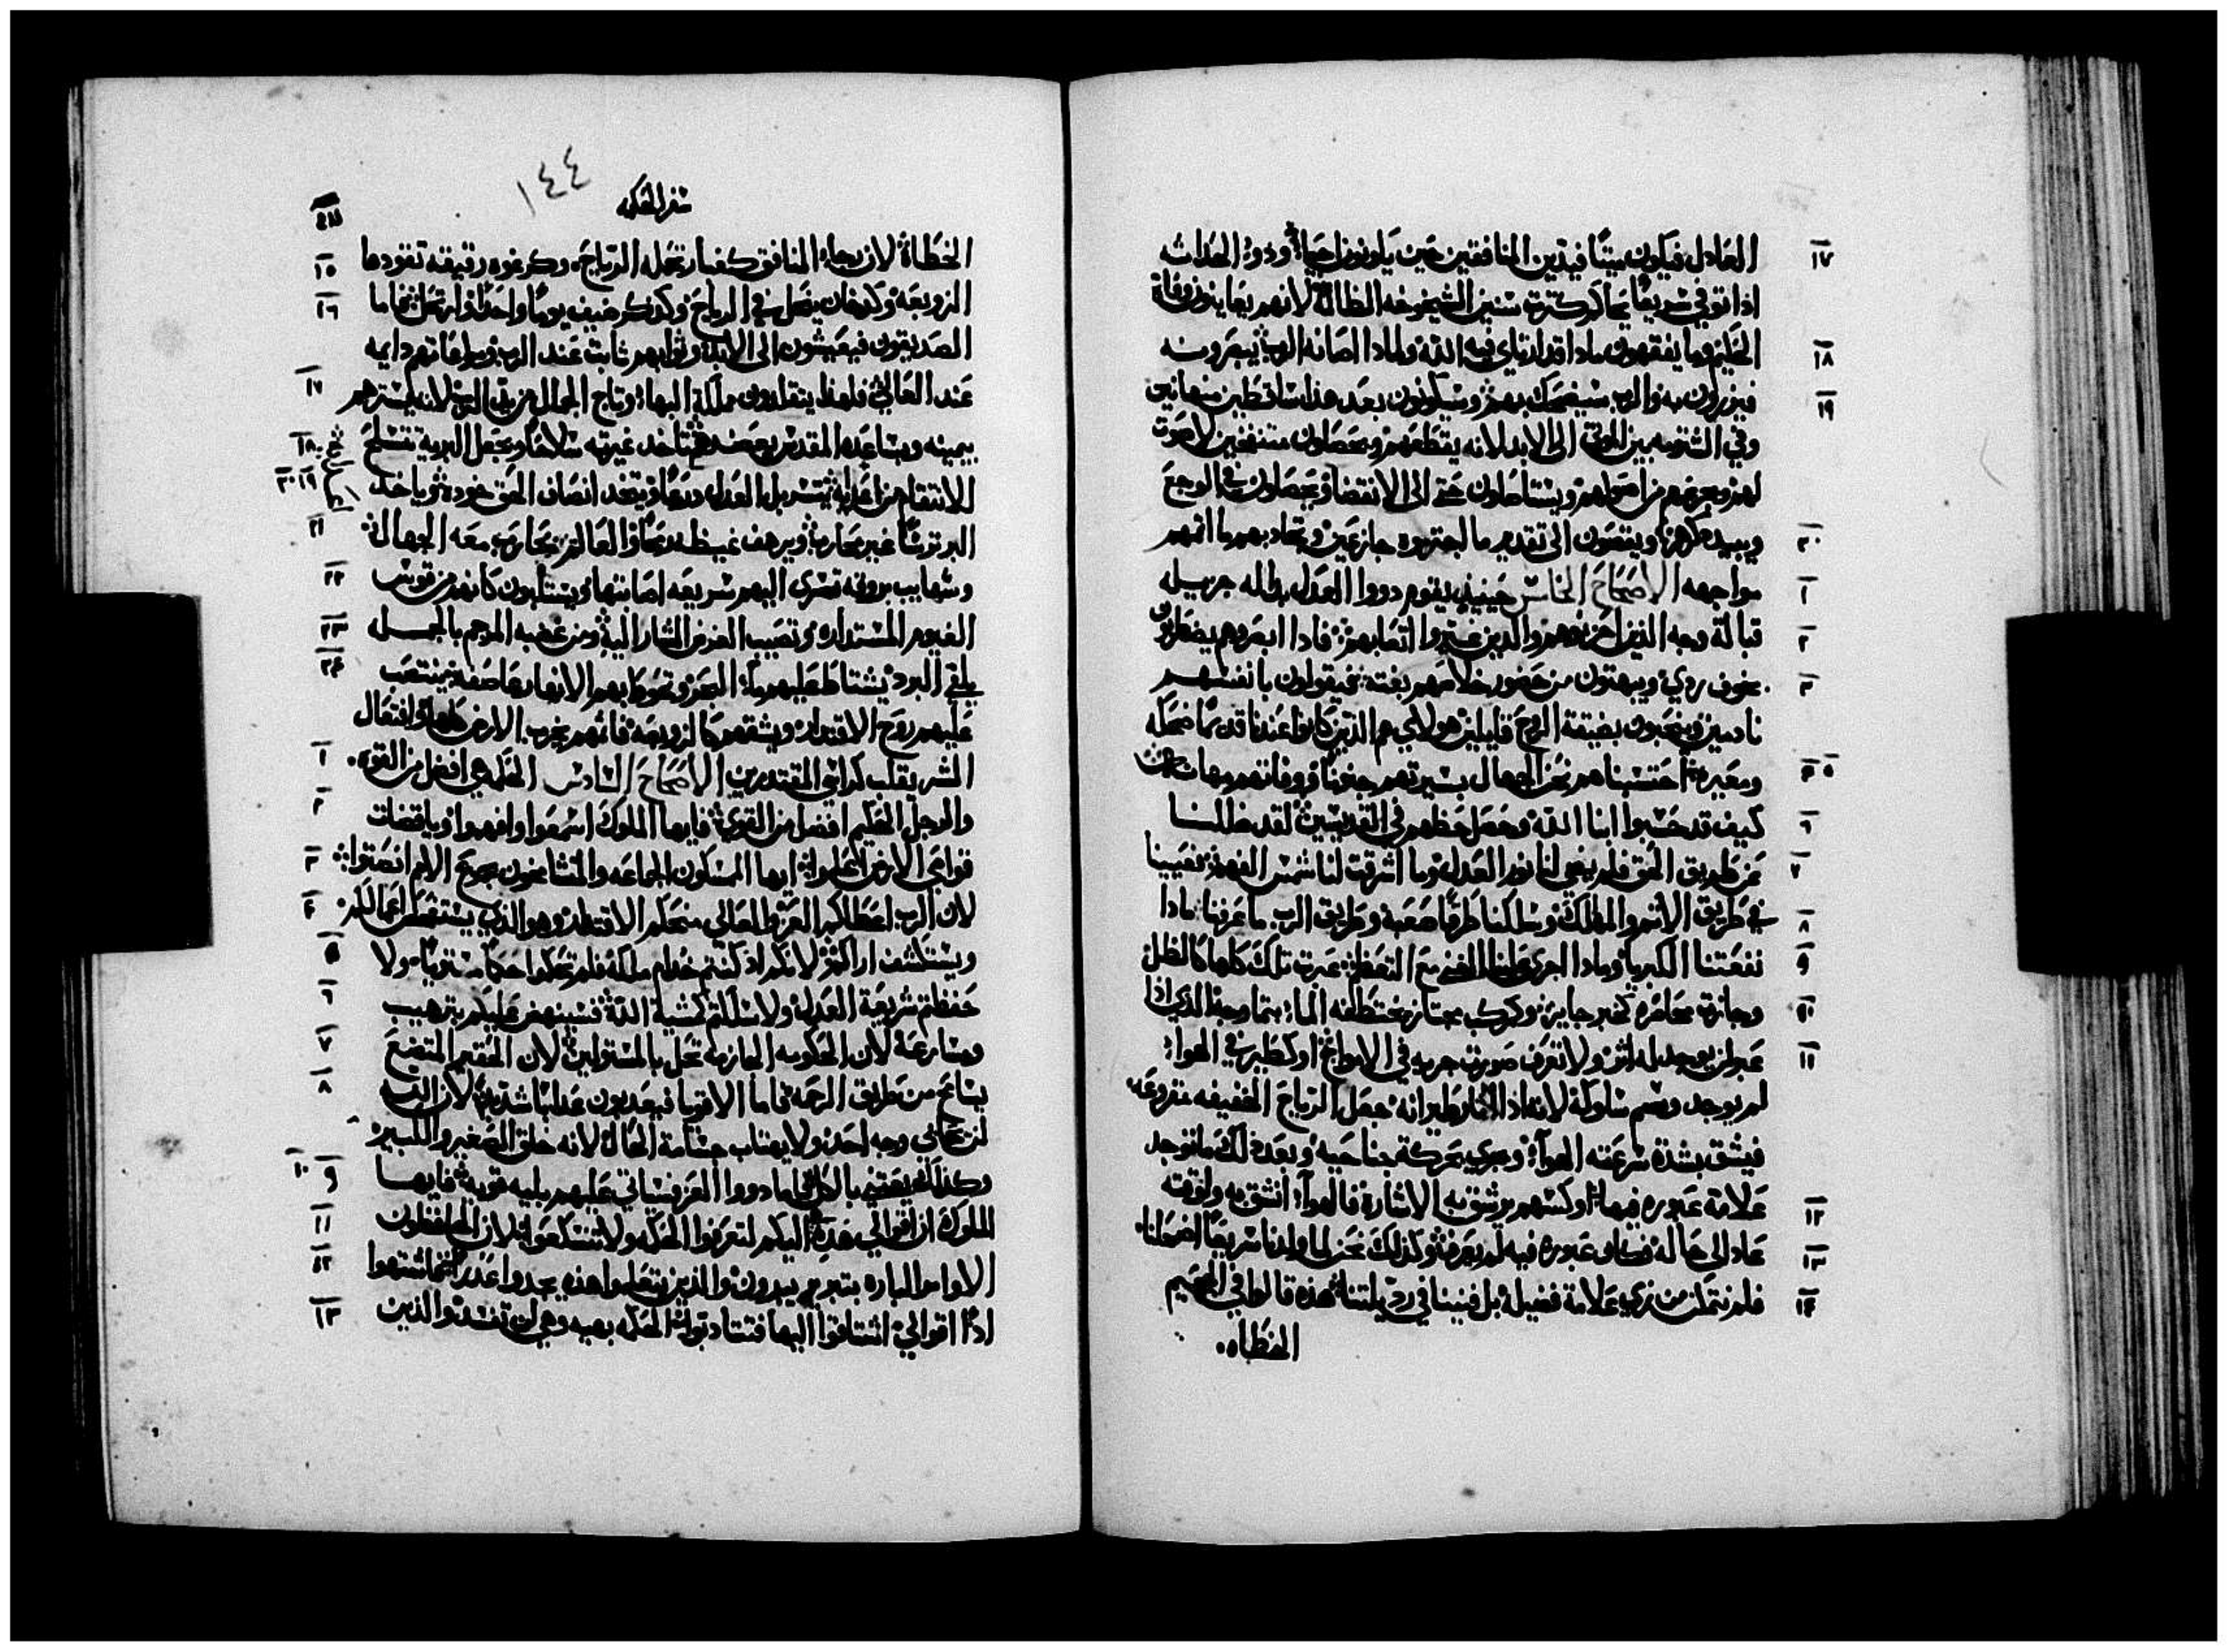 ١٧ العادل فيكون ميتًا فيدين المنافقين حين يكونون احيا وذوو الحداثه
اذا توفي سريعًا يحاكم كثرة سنين الشيخوخه الظالمة لانهم يعاينون وفاة
١٨ الحكيم وما يفقهون مادا قد ارتاى فيه الله ولمادا اصانه الرب يبصرونه
١٩ فيزرون به والرب سيضحك بهم وسيكونون بعد هذا ساقطين مهانين
وفي الشتيمه بين الموتى الى الابد لانه يقطعهم ويحصلون منتفخين لا صوت
لهم ويزعزعهم من اصولهم ويستاصلون حتى الى الانقضا ويحصلون في الوجع
٢٠ ويبيد ذكرهم وينتصون الى تقديم ما اجترموه جازعين وتجاد بهم ماثمهم
١ مواجهه الاصحاح الخامس حينيذ يقوم دووا العدل بدالة جزيله
٢ قبالة وجه الذين احزنوهم والدين غيروا اتعابهم فادا ابصروهم يضطربون
٣ بخوف ردي ويبهتون من حضور خلاصهم بغته فيقولون بانفسهم
نادمين وينحبون بضيقة الروح قايلين هولاي هم الذين كانوا عندنا قديمًا ضحكه
٤ ٥ ومعيره احتسبناهم نحن الجهال بسيرتهم جنونًا ووفاتهم مهانه
٦ كيف قد حسبوا ابنا الله وحصل حظهم في القديسين لقد ضللنا
٧ عن طريق الحق فلم يضي لنا نور العدل وما اشرقت لنا شمس الفهم تعبينا
٨ في طريق الاثم والهلكة وسلكنا طرقًا صعبة وطريق الرب ما عرفنا مادا
٩ نفعتنا الكبريا ومادا اجرى علينا الغنى مع التعظم عبرت تلك كلها كالظل
١٠ وجازت محاضره كخبر جايز وكمركب مجتاز تختطفه الما بتماوجه الذي اذا
١١ عبر لن يوجد له اثر ولا تعرف صورة جريه في الامواج او كطير في الهوا
لم يوجد وسم سلوكه لانه اذا طيرانه حصل الرياح الخفيفه مقروعه
فيشق بشدة سرعته الهوآ ويجري بحركة جناحيه وبعد ذلك ما توجد
١٢ علامة عبوره فيها او كسهم يرشق به الاشارة فالهوآ انشق به ولوقته
١٣ عاد الى حاله فكان عبوره فيه لم يعرف وكذلك نحن لما ولدنا سريعًا اضمحلنا
١٤ فلم نتمكن من نري علامة فضيلة بل فنينا في رذيلتنا هذه قالوا في الجحيم
الخطاه
١٤٤
سفر الحكمه
الخطاة لان رجاء المنافق كغبار تحمله الرياح وكرغوه رقيقه تقودها
١٥ الزوبعه وكدخان ينحل في الرياح وكذكر ضيف يومًا واحدًا وارتحل فاما
١٦ الصديقون فيعيشون الى الابد وثوابهم ثابت عند الرب ومراعاتهم دايمه
١٧ عند العالي فلهذا يتقلدون مملكة البها وتاج الجمال من يد الرب لانه يسترهم
١٨ بيمينه ويساعده المقدس يعضدهم تاخد غيرته سلاحًا ويجعل البريه تتسلح
١٩ ٢٠ للانتقام من اعدايه يتسربل العدل درعًا ويتخد انصاف الحق خوده وياخد
٢١ البر ترسًا غير محارب ويرهف غيظه رمحًا والعالم يحارب معه الجهال
٢٢ وشهايب بروقه تسرى اليهم سريعه اصابتها ويستلبون كانهم من قوس
٢٣ الغيوم المستداره وتصيب الغرض المشار اليه ومن غضبه المرجم بالجمل
٢٤ يلقي البرد يشتاط عليهم ما البحر وتحوط بهم الانهار عاصفه ينتصب
عليهم روح الاقتدار ويشقهم كالزوبعه فاثمهم يخرب الارض كلها وافتعال
١ الشر يقلب كراسي المقتدرين الاصحاح السادس الحكمه هي افضل من القوه
٢ والرجل الحكيم افضل من القوي فايها الملوك اسمعوا وافهموا ويا قضات
٣ نواحي الارض اعلموا ايها الماسكون الجماعه والمتشامخون بجموع الامم انصتوا
٤ لان الرب اعطاكم العز والعالي منحكم الاقتدار وهو الذي يستفحص اعمالكم
٥ ويستكشف اراكم لانكم اذ كنتم خدام ملكه فلم تحكموا حكمًا مستويًا ولا
٦ حفظتم شريعة العدل ولا سلكتم كمشية الله فسينهض عليكم بترهيب
٧ ومسارعة لان الحكومه الجازمه تحل بالمستولين لان الحقير المتضع
٨ يسامح من طريق الرحمه فاما الاقويا فيعدبون عدابًا شديدًا لان الرب
لن يحابي وجه احد ولا يهتاب جسامة الحال لانه خلق الصغير والكبير
٩ ١٠ وكذلك يعتني بالكل فاما دووا العز فسياتي عليهم بليه قويه فايها
١١ الملوك ان اقوالي هذه اليكم لتعرفوا الحكمه ولا تتسكعوا لان الحافظون
١٢ الاوامر الباره بتبرير يبررون والذين يتعلموا هذه يجدوا عدرًا فاشتهوا
١٣ ادًا اقوالي اشتاقوا اليها فتتادبوا الحكمه بهيه وهي لن تفسد والذين